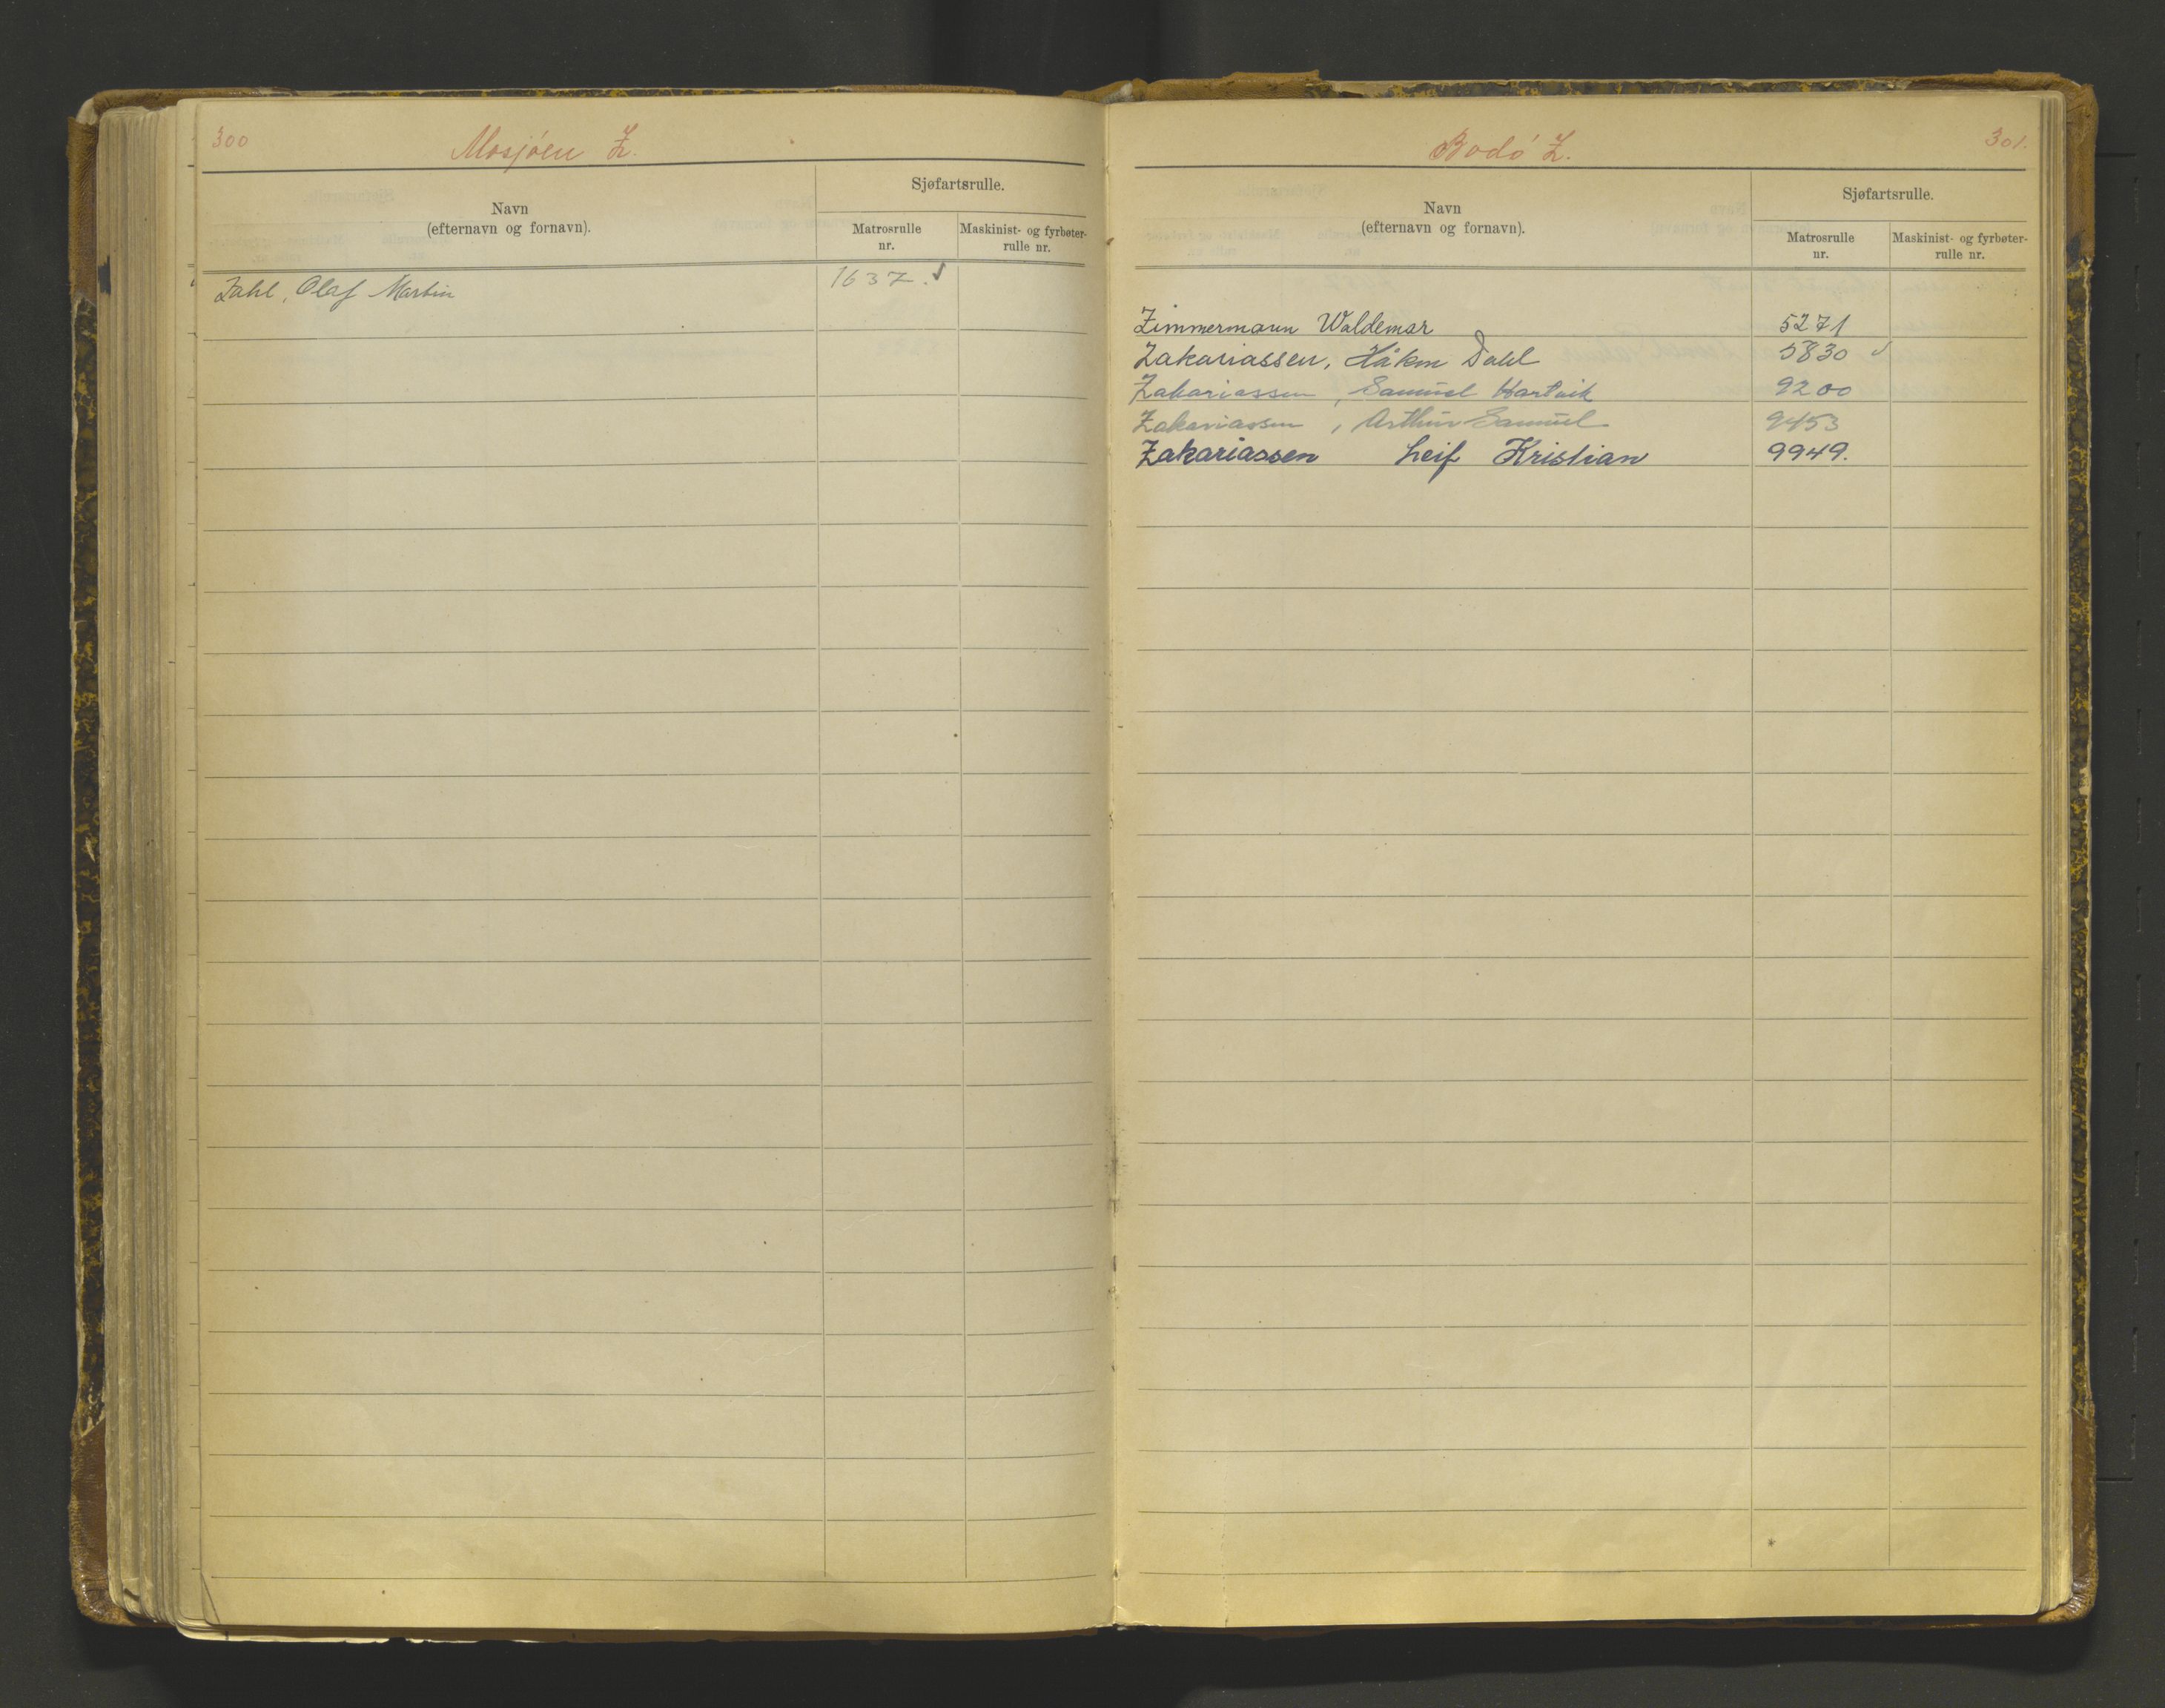 300
Mosjöen Z.
Navn
(efternavn og fornavn).
Sjøfartsrulle.
Matrosrulle
nr.
Maskinist- og fyrbøter-
rulle nr.
Zahl, Olaf Martin 1637. ✓
Bodö Z.
301.
Navn
(efternavn og fornavn).
Sjøfartsrulle.
Matrosrulle
nr.
Maskinist- og fyrbøter-
rulle nr.
Zimmermann Waldemar 5271
Zakariassen, Håkon Dahl 5830 ✓
Zakariassen, Samuel Hartvik 9200
Zakariassen, Arthur Samuel 9453
Zakariassen Leif Kristian 9949.